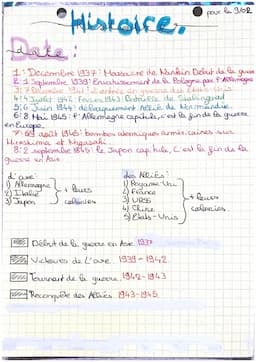 pour le 9/02
Histoire.
Date:
1: Décembre 1937: Massacre de Nankin Début de la guerre
2: 1 Septembre 1939: Envahissement de la Pologne par l'Allemagne
3: 7 Décembre 1941: L'entrée en guerre des États-Unis
4: Juillet 1942 Février 1943: Bataille de Stalingrad
5: 6 Juin 1944: débarquement Alliés de Normandie.
6: 8 Mai 1945: l'Allemagne capitule, c'est la fin de la guerre
en Europe.
août 1945: bombes atomiques américaines sur
Hiroshima et Nagasaki.
8: 2 septembre 1945: le Japon capitule, C'est la fin de la
guerre en Asie.
d'axe:
1) Allemagne
2) Italie
3) Japon
+ leurs
colonies
des Alliés:
1) Royaume-Uni
2) France
3) URSS
4) Chine
5) États-Unis
+ leurs
colonies.
Début de la guerre en Asie 1937
Victoires de l'axe 1939-1942
Tournant de la guerre 1942-1943
Reconquête des Alliés 1943-1945.